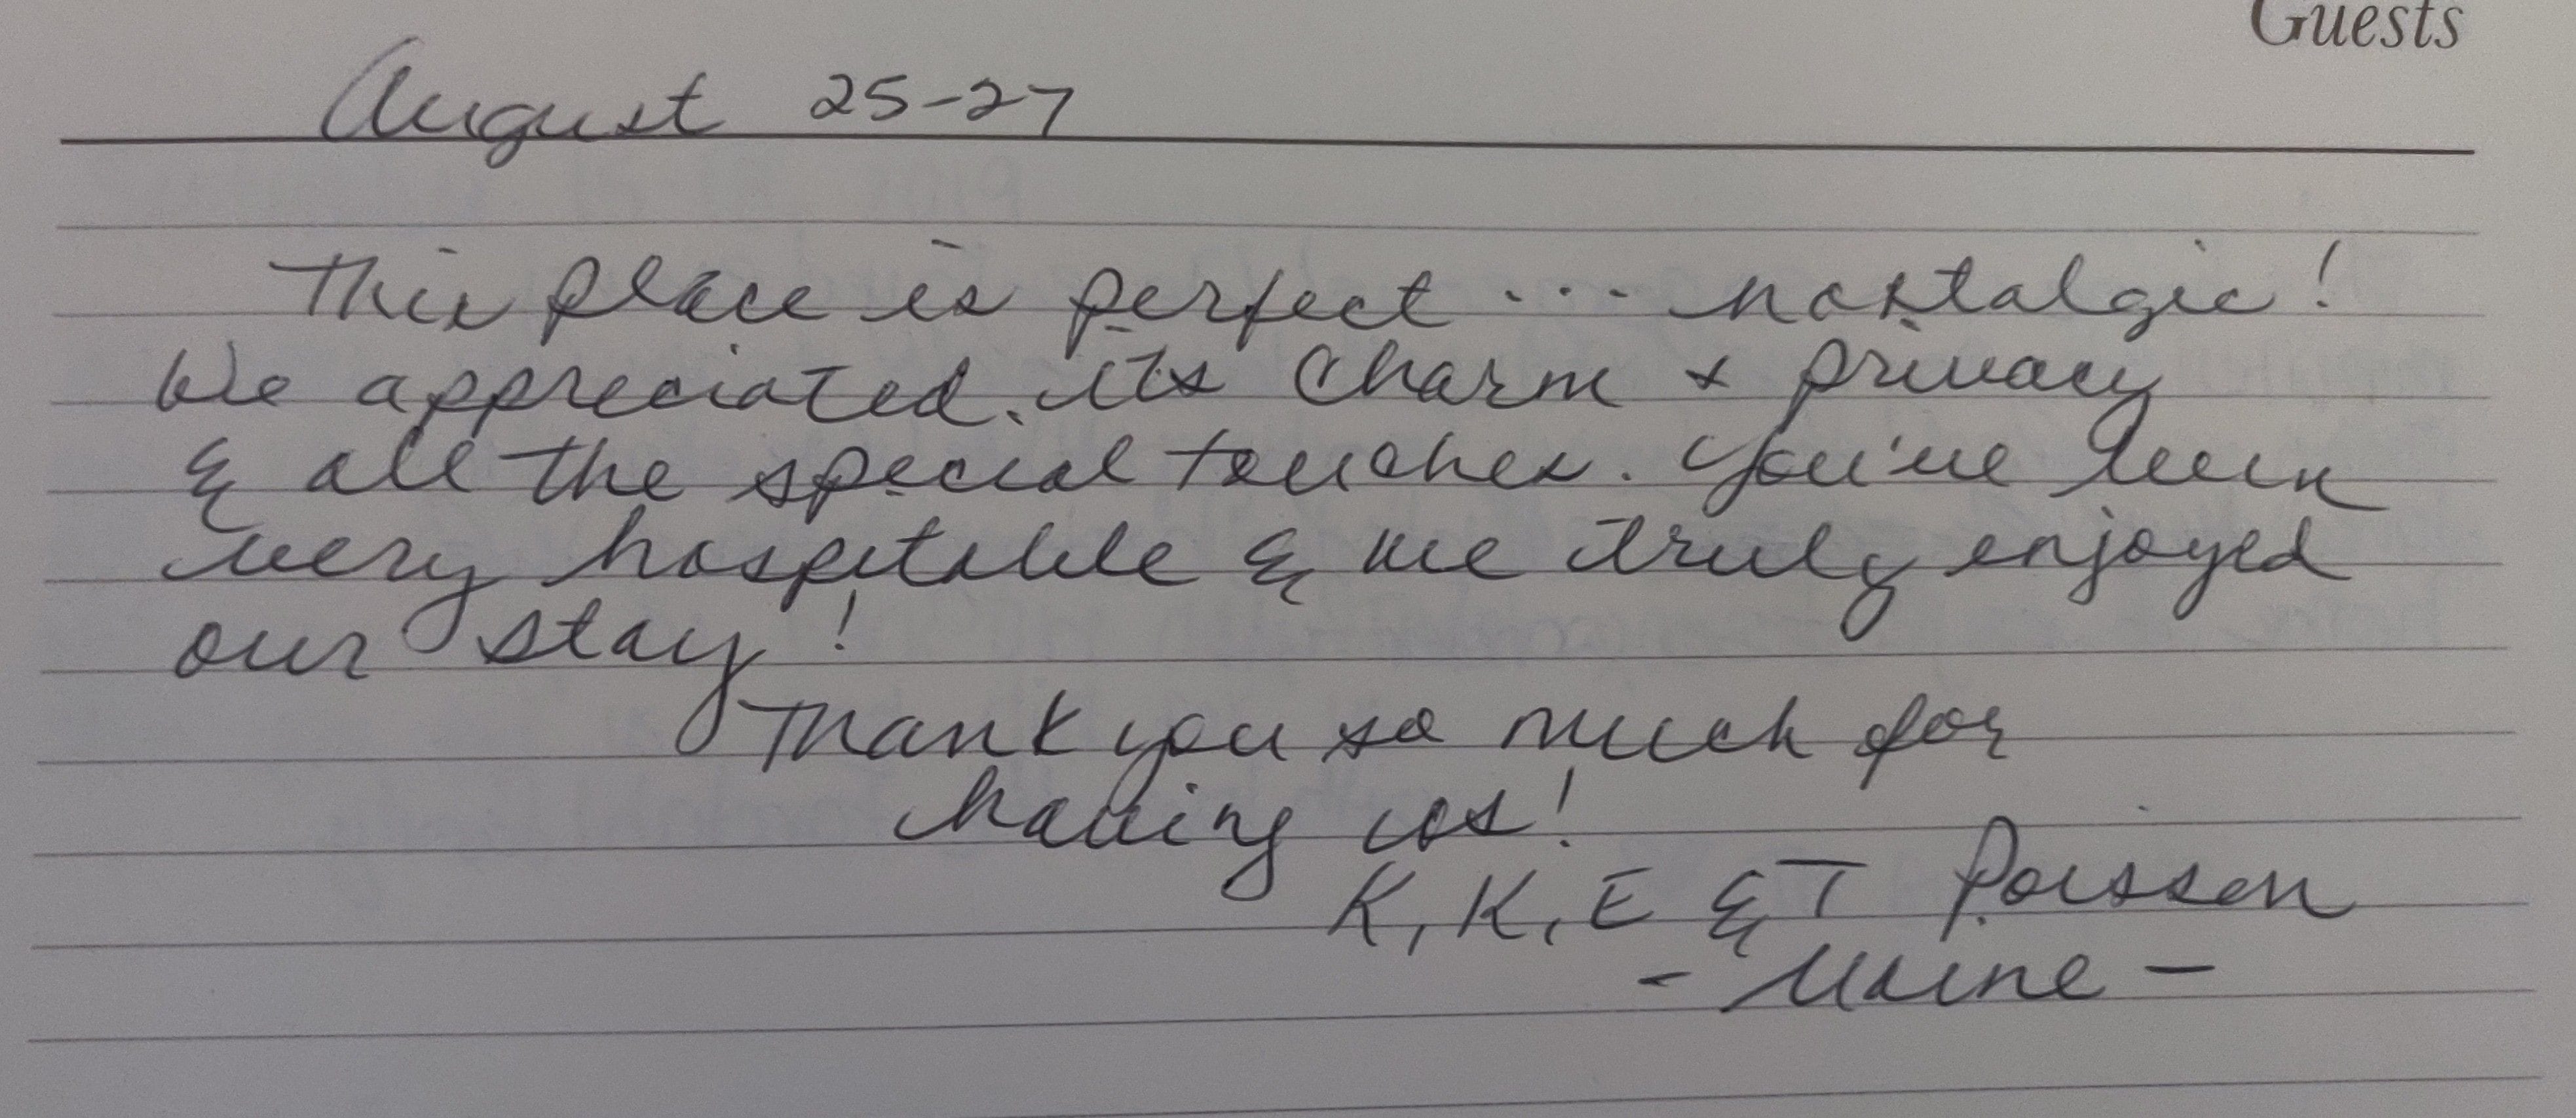 Guests
August 25-27
This place is perfect ... nostalgic!
We appreciated its charm + privacy
& all the special touches. You've been
very hospitable & we truly enjoyed
our stay!
Thank you so much for
having us!
K, K, E & T Poisson
- Maine -